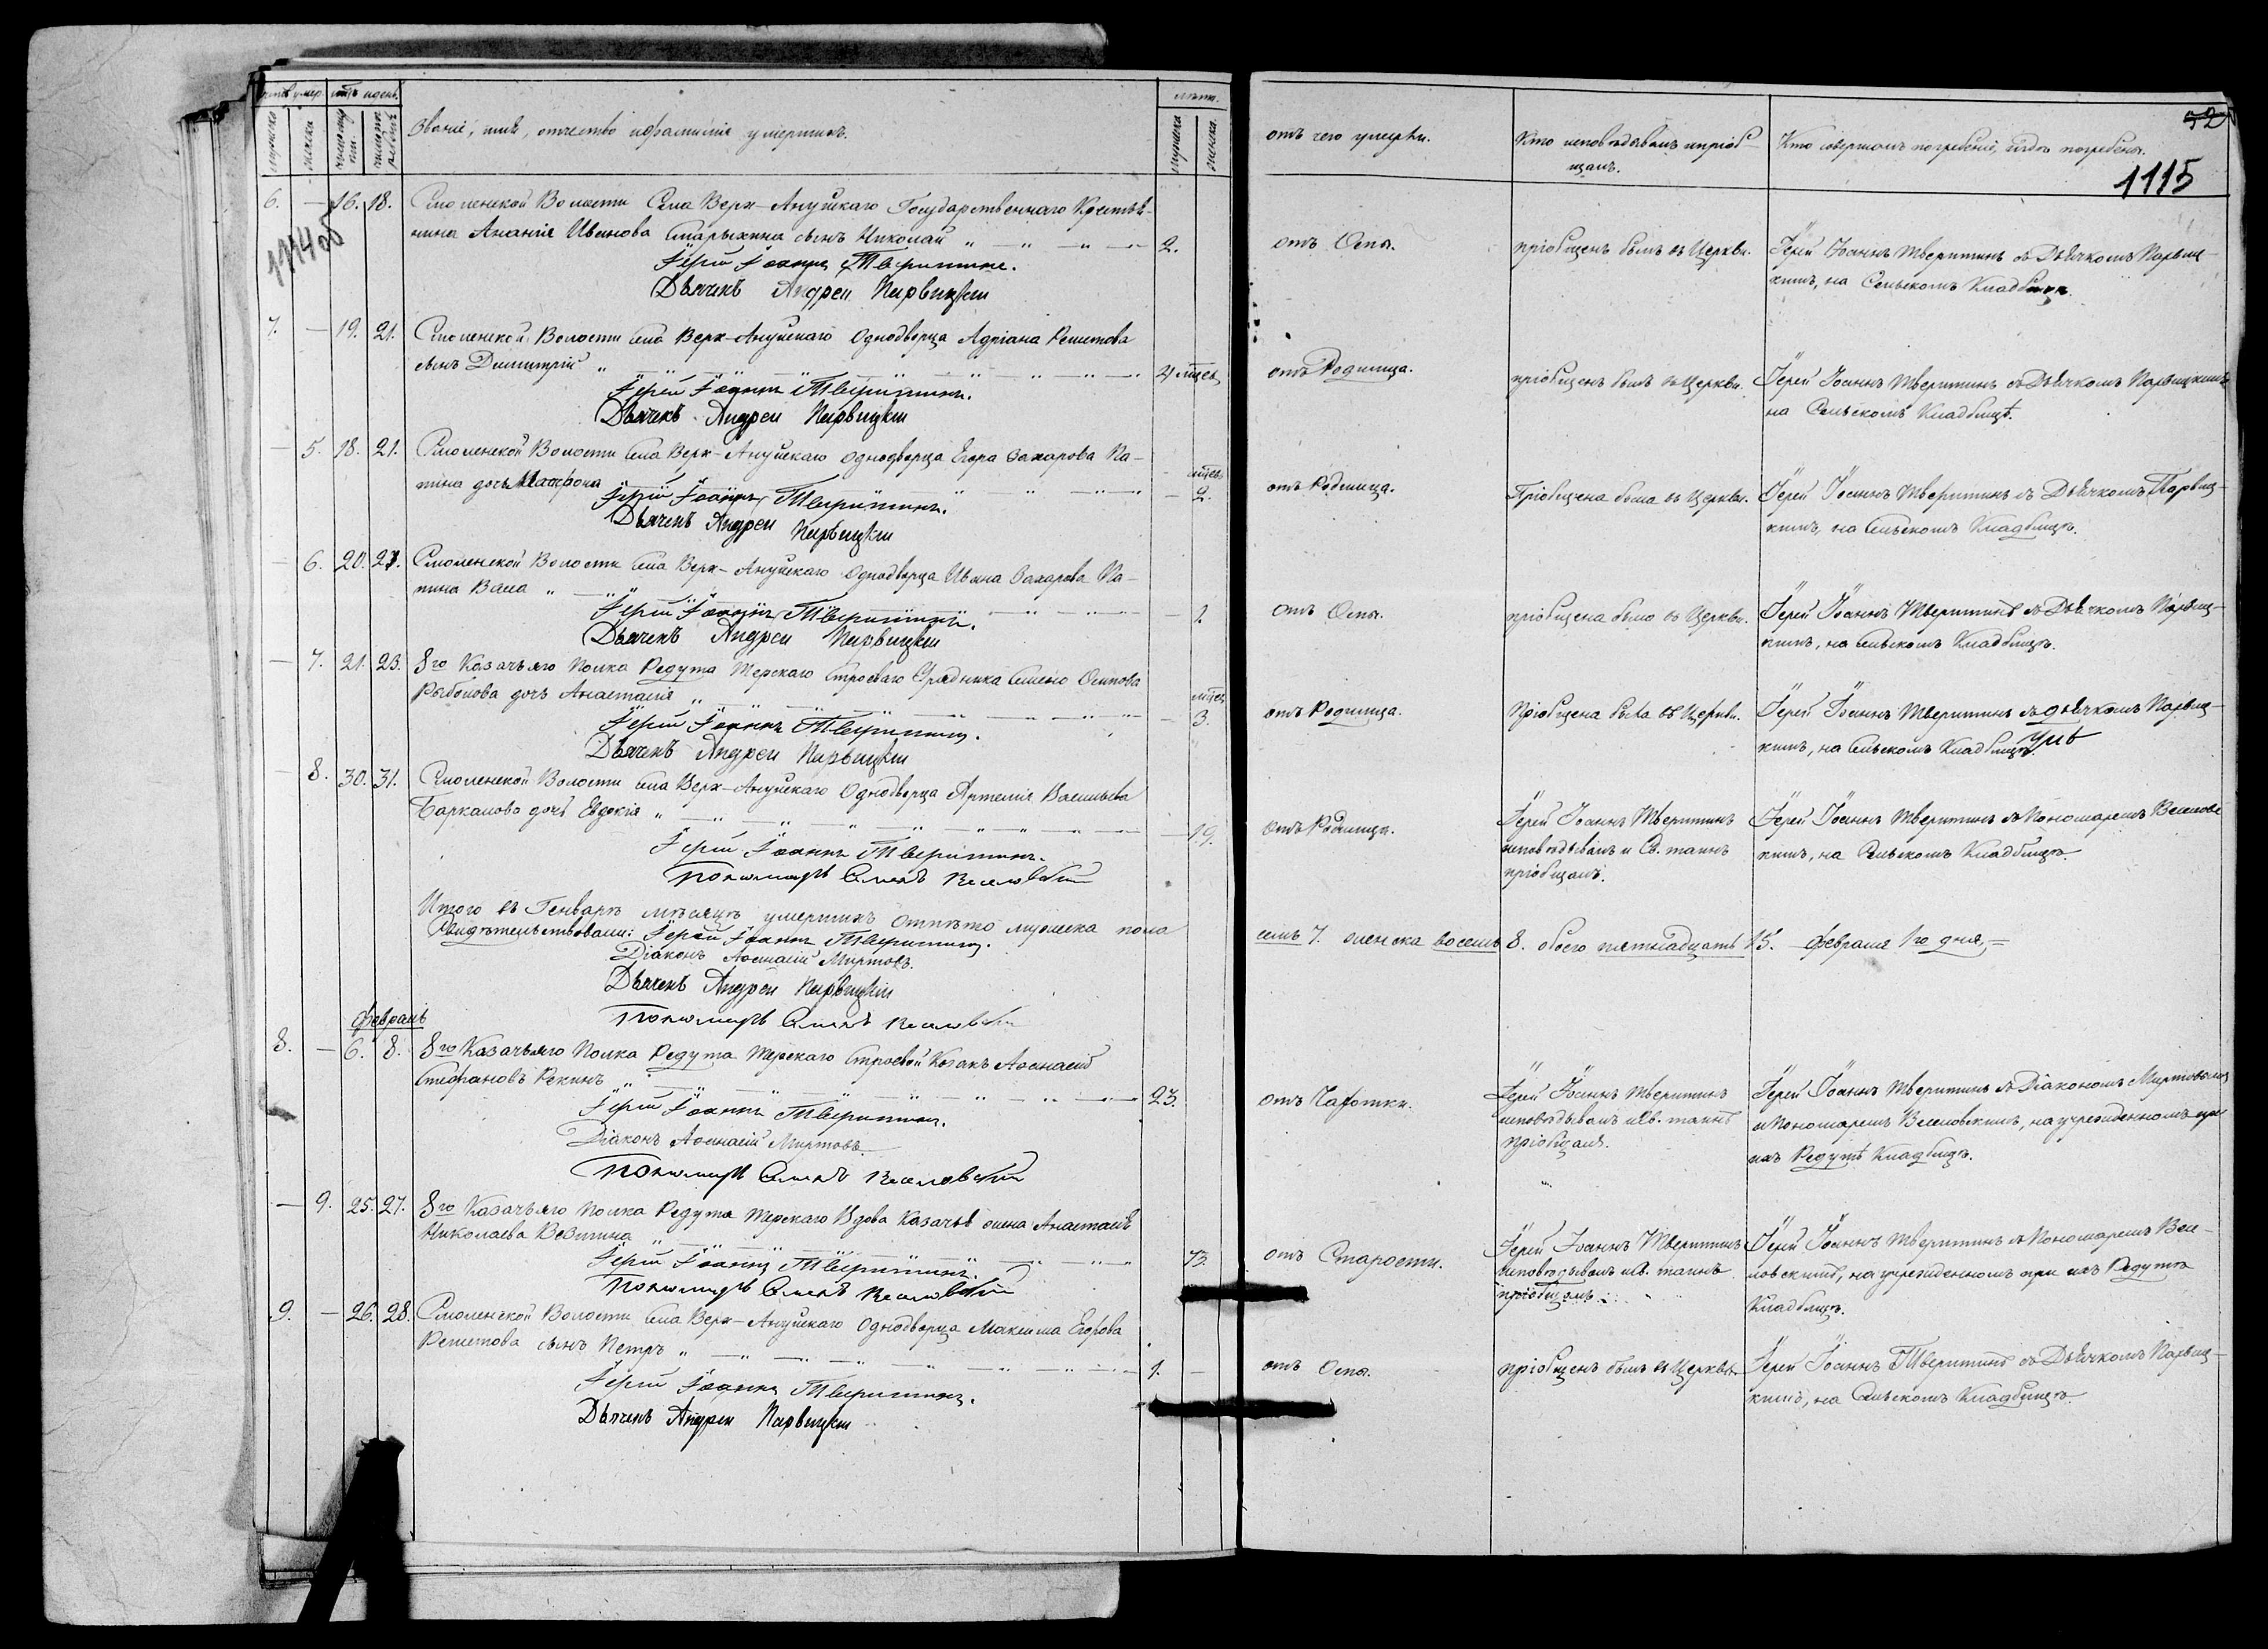 Счетъ умер. мѣс. и день.
Званіе, имя, отчество и фамилія умершихъ.
лѣта.
мужеска
женска
мужеска
женска.
отъ чего умерли.
Кто исповѣдывалъ и пріоб-
щалъ.
Кто совершалъ погребеніе, и гдѣ погребены.
52
1115
1114об
6. — 16. 18. Смоленской Волости Села Верх-Ануйскаго Государственнаго Крестья-
нина Ананія Иванова Старыхина сынъ Николай 2.
Іерей Іоаннъ Тверитинъ.
Дьячекъ Андрей Парвицкій
отъ Оспы.
пріобщенъ былъ въ Церкви.
Іерей Іоаннъ Тверитинъ съ Дьячкомъ Парвиц-
кимъ, на Сельскомъ Кладбищѣ.
7. — 19. 21. Смоленской Волости села Верх-Ануйскаго Однодворца Адріана Решетова
сынъ Димитрій 4 мѣсец.
Іерей Іоаннъ Тверитинъ.
Дьячекъ Андрей Парвицкій
отъ Родимца.
пріобщенъ былъ въ Церкви.
Іерей Іоаннъ Тверитинъ съ Дьячкомъ Парвицкимъ
на Сельскомъ Кладбищѣ.
— 5. 18. 21. Смоленской Волости села Верх-Ануйскаго Однодворца Егора Захарова Па-
пина дочь Матрона — мѣсец. 2.
Іерей Іоаннъ Тверитинъ.
Дьячекъ Андрей Парвицкій
отъ Родимца.
Пріобщена была въ Церкви.
Іерей Іоаннъ Тверитинъ съ Дьячкомъ Парвиц-
кимъ, на Сельскомъ Кладбищѣ.
— 6. 20. 21. Смоленской Волости села Верх-Ануйскаго Однодворца Ивана Захарова Па-
пина Васса — 1.
Іерей Іоаннъ Тверитинъ.
Дьячекъ Андрей Парвицкій
отъ Оспы.
пріобщена была въ Церкви.
Іерей Іоаннъ Тверитинъ съ Дьячкомъ Парвиц-
кимъ, на Сельскомъ Кладбищѣ.
— 7. 21. 23. 8го Казачьяго Полка Редута Терскаго Строеваго Урядника Семена Осипова
Рыболова дочь Анастасія — мѣсец. 3.
Іерей Іоаннъ Тверитинъ.
Дьячекъ Андрей Парвицкій
отъ Родимца.
Пріобщена была въ Церкви.
Іерей Іоаннъ Тверитинъ съ дьячкомъ Парвиц-
кимъ, на Сельскомъ Кладбищѣ.
— 8. 30. 31. Смоленской Волости села Верх-Ануйскаго Однодворца Артемія Васильева
Баркалова дочь Евдокія — 19.
Іерей Іоаннъ Тверитинъ.
Пономарь Семенъ Веселовскій
отъ Родимца.
Іерей Іоаннъ Тверитинъ
исповѣдывалъ и Св. таинъ
пріобщалъ.
Іерей Іоаннъ Тверитинъ съ Пономаремъ Веселовс
кимъ, на Сельскомъ Кладбищѣ.
Итого въ Генварѣ мѣсяцѣ умершихъ отпѣто мужеска пола
семь 7. женска восемь 8. обоего пятнадцать 15. Февраля 1го дня.
Свидѣтельствовали: Іерей Іоаннъ Тверитинъ.
Діаконъ Аѳанасій Миртовъ.
Дьячекъ Андрей Парвицкій
Пономарь Семенъ Веселовскій
Февраль
8. — 6. 8. 8го Казачьяго Полка Редута Терскаго Строевой Козакъ Аѳанасій
Стефановъ Рекинъ 23.
Іерей Іоаннъ Тверитинъ.
Діаконъ Аѳанасій Миртовъ.
Пономарь Семенъ Веселовскій
отъ Чахотки.
Іерей Іоаннъ Тверитинъ
исповѣдывалъ и Св. таинъ
пріобщалъ.
Іерей Іоаннъ Тверитинъ съ Діакономъ Миртовымъ
и Пономаремъ Веселовскимъ, на учрежденномъ при
ихъ Редутѣ Кладбищѣ.
— 9. 25. 27. 8го Казачьяго Полка Редута Терскаго Вдова Казачья жена Анастасія
Николаева 73.
Іерей Іоаннъ Тверитинъ.
Пономарь Семенъ Веселовскій
отъ Старости.
Іерей Іоаннъ Тверитинъ
исповѣдывалъ и Св. таинъ
пріобщалъ.
Іерей Іоаннъ Тверитинъ съ Пономаремъ Весе-
ловскимъ, на учрежденномъ при ихъ Редутѣ
Кладбищѣ.
9. — 26. 28. Смоленской Волости села Верх-Ануйскаго Однодворца Максима Егорова
Решетова сынъ Петръ 1. —
Іерей Іоаннъ Тверитинъ.
Дьячекъ Андрей Парвицкій
отъ Оспы.
пріобщенъ былъ въ Церкви.
Іерей Іоаннъ Тверитинъ съ Дьячкомъ Парвиц-
кимъ, на Сельскомъ Кладбищѣ.